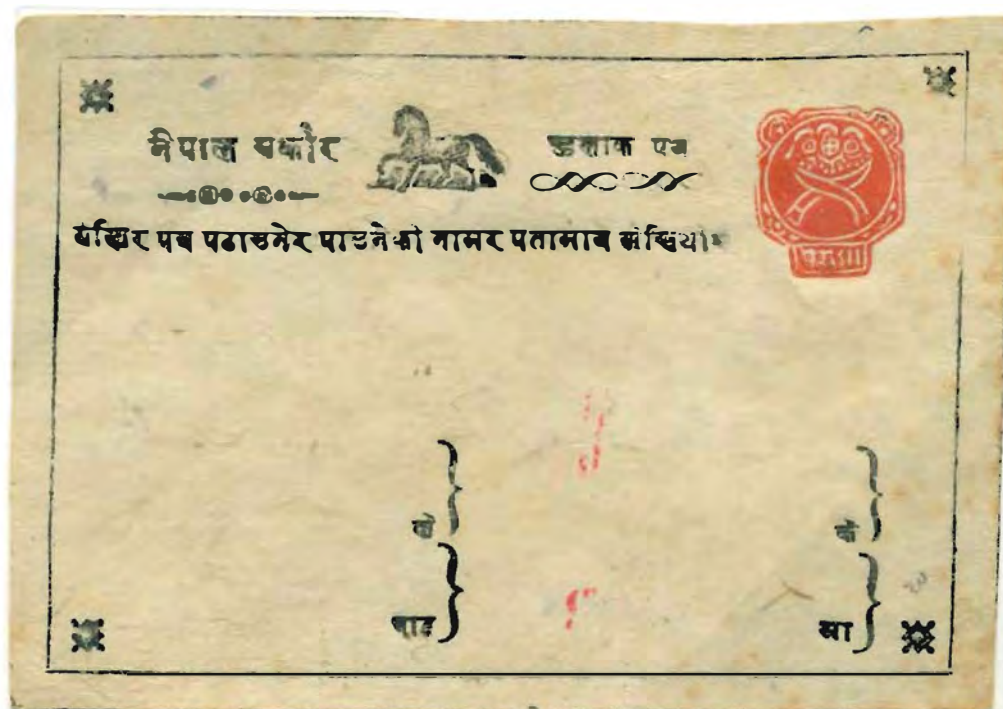 नेपाल सर्कार
हुलाक पत्र
येस्तिर पत्र पठाउनेर पाउनेको नामर पतामात्र लेखियोस
ले
के
बाट
मा